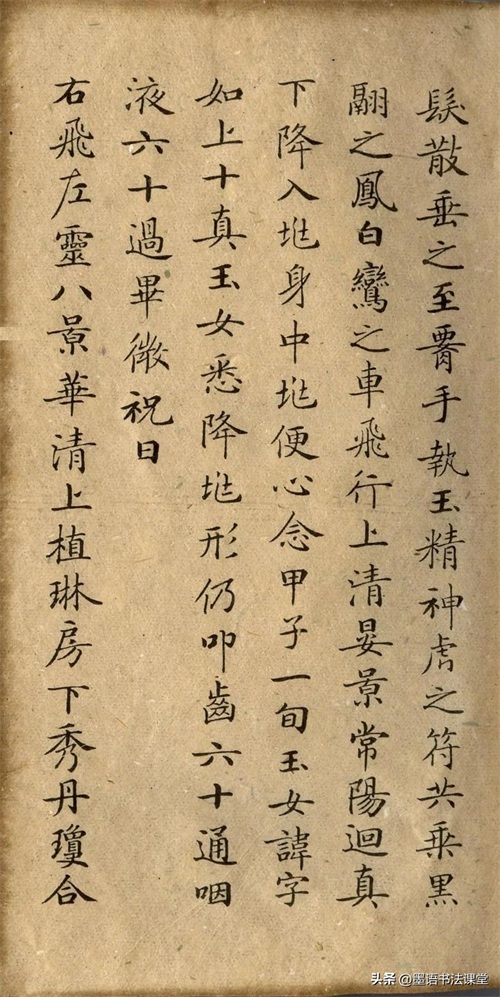 髮散垂之至腰手執玉精神虎之符共乘黑
翮之鳳白鸞之車飛行上清晏景常陽迴真
下降入兆身中兆便心念甲子一旬玉女諱字
如上十真玉女悉降兆形仍叩齒六十通咽
液六十過畢微祝曰
右飛左靈八景華清上植琳房下秀丹瓊合
头条 @墨语书法课堂